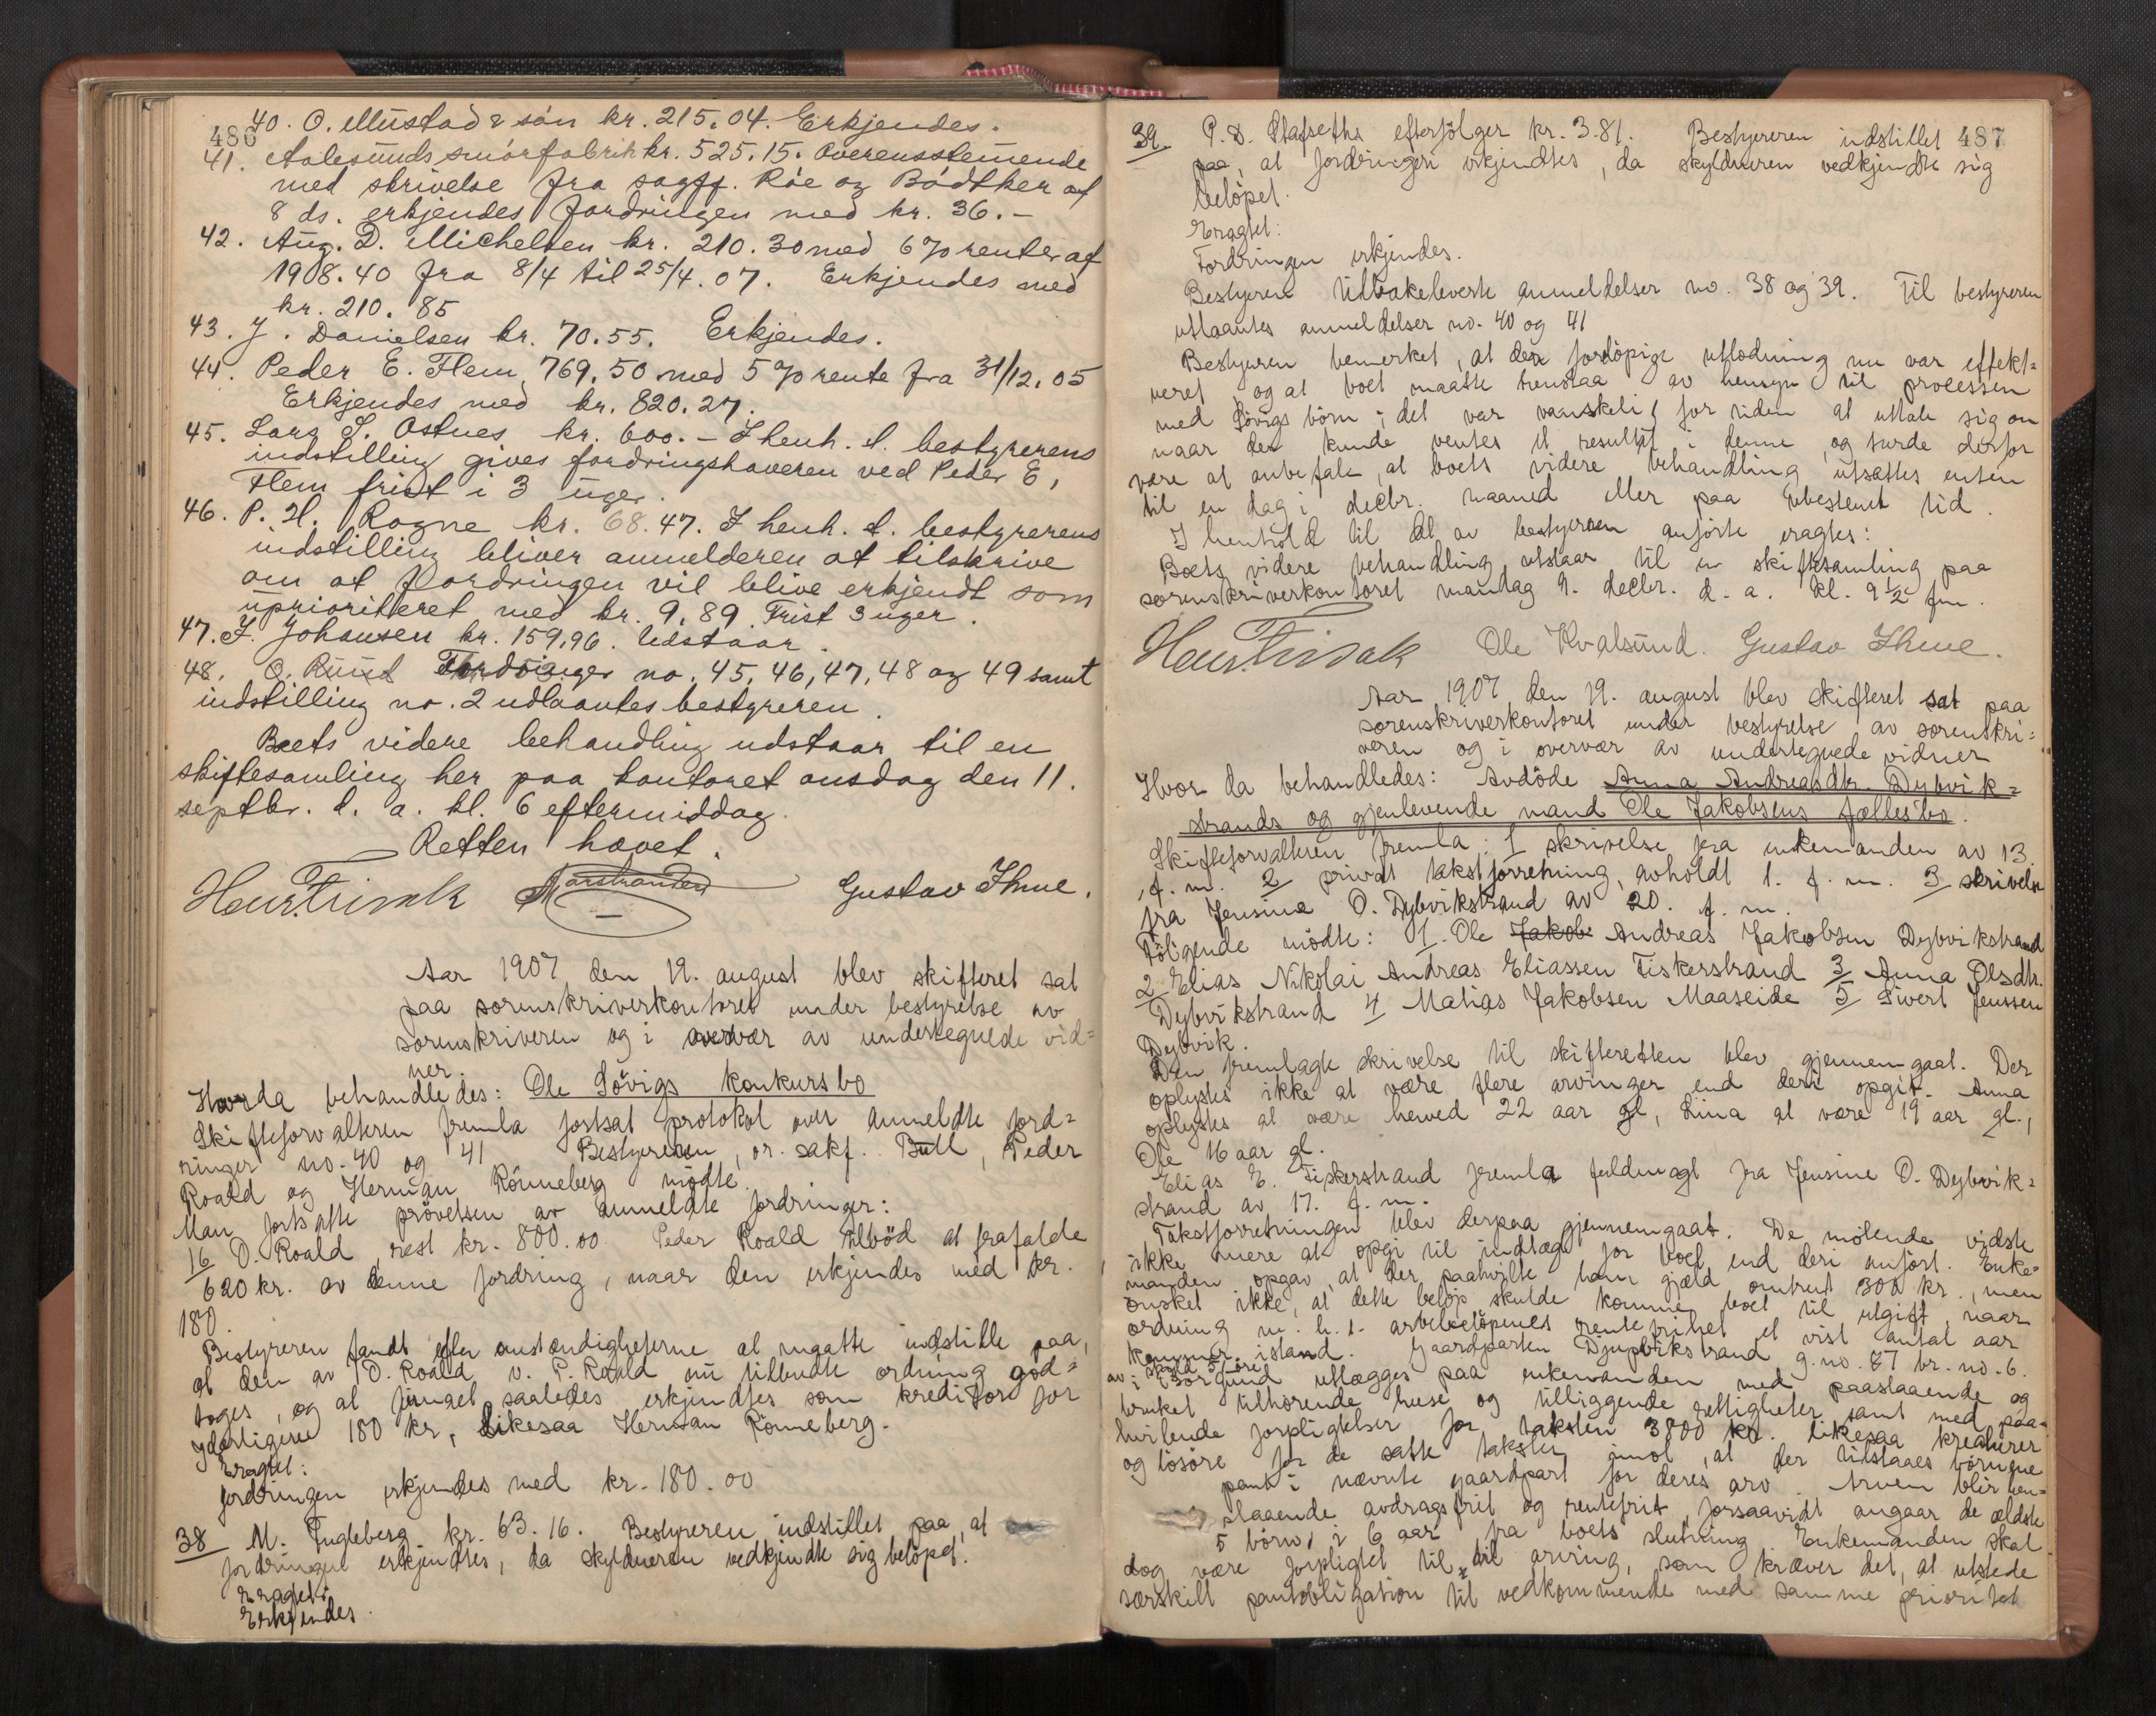 486
40. O. Mustad & søn kr. 215.04. Erkjendes.
41. Aalesunds smørfabrik kr. 525.15. Overensstemende
med skrivelse fra sagff. Røe og Bødtker af
8 ds. erkjendes fordringen med kr. 36.-
42. Aug. D. Michelsen kr. 210.30 med 6 % renter af
1908.40 fra 8/4 til 25/4.07. Erkjendes med
kr. 210.85
43. J. Danielsen kr. 70.55. Erkjendes.
44. Peder E. Flem 769.50 med 5 % rente fra 31/12.05
Erkjendes med kr. 820.27.
45. Lars S. Ostnes kr. 600.- I henh. t. bestyrerens
indstilling gives fordringshaveren ved Peder E.
Flem frist i 3 uger.
46. P. H. Rogne kr. 68.47. I henh. t. bestyrerens
indstilling bliver anmelderen at tilskrive
om at fordringen vil blive erkjendt som
uprioriteret med kr. 9.89. Frist 3 uger.
47. I. Johansen kr. 159.96. Udstaar.
48. O. Fordringer no. 45, 46, 47, 48 og 49 samt
indstilling no. 2 udlaantes bestyreren.
Boets videre behandling udstaar til en
skiftesamling her paa kontoret onsdag den 11.
septbr. d. a. kl. 6 eftermiddag.
Retten hævet.
Gustav Thue.
Aar 1907 den 19. august blev skifteret sat
paa sorenskriverkontoret under bestyrelse av
sorenskriveren og i overvær av undertegnede vid=
ner.
Hvor da behandledes: Ole Søvigs konkursbo
Skifteforvalteren fremla fortsat protokol over anmeldte ford=
ringer no. 40 og 41 Bestyreren, or. sakf. Bull, Peder
Roald og Herman Rønneberg mødte.
Man fortsatte prøvelsen av anmeldte fordringer:
16 D. Roald, rest kr. 800.00 Peder Roald tilbød at frafalde
620 kr. av denne fordring, naar den erkjendes med kr.
180.
Bestyreren fandt efter omstændigheterne at maatte indstille paa,
at den av D. Roald v. P. Roald nu tilbudte ordning god=
toges, og at saaledes erkjendtes som kreditor for
yderligere 180 kr, likesaa Herman Rønneberg.
Eragtet:
Fordringen erkjendes med kr. 180.00
38 M. Ingleberg kr. 63.16. Bestyreren indstillet paa, at
fordringen erkjendtes, da skyldneren vedkjendte sig beløpet.
Eragtet:
Erkjendes.
487
39. P. D. Stafseths efterfølger kr. 3.81. Bestyreren indstillet
paa, at fordringen erkjendtes, da skyldneren vedkjendte sig
beløpet.
Eragtet:
Fordringen erkjendes.
Bestyreren tilbakeleverte anmeldelser no. 38 og 39. Til bestyreren
utlaantes anmeldelser no. 40 og 41
Bestyreren bemerket, at den foreløpige utlodning nu var effekt=
veret, og at boet maatte henstaa av hensyn til processen
med Søvigs børn; det var vanskelig for tiden at uttale sig om
naar der kunde ventes et resultat i denne, og turde derfor
være at anbefale, at boets videre behandling utsættes enten
til en dag i decbr. maaned eller paa ubestemt tid.
I henhold til det av bestyreren anførte eragtes:
Boets videre behandling utstaar til en skiftesamling paa
sorenskriverkontoret mandag 9. decbr. d. a. kl. 9 1/2 fm.
Ole Kvalsund. Gustav Thue.
Aar 1907 den 19. august blev skifteret sat paa
sorenskriverkontoret under bestyrelse av sorenskri=
veren og i overvær av undertegnede vidner
Hvor da behandledes: Avdøde Anna Andreasdtr. Dybvik=
strands og gjenlevende mand Ole Jakobsens fællesbo.
Skifteforvalteren fremla: 1 skrivelse fra enkemanden av 13.
f. m. 2 privat takstforretning, avholdt 1. f. m. 3 skrivelse
fra Jensine O. Dybvikstrand av 20. f. m.
Følgende mødte: 1. Ole Jakob Andreas Jakobsen Dybvikstrand
2. Elias Nikolai Andreas Eliassen Fiskerstrand 3 Anna Olsdtr.
Dybvikstrand 4 Matias Jakobsen Maaseide 5 Sivert Jenssen
Dybvik.
Den fremlagte skrivelse til skifteretten blev gjennemgaat. Der
oplystes ikke at være flere arvinger end deri opgit. Anna
oplystes at være henved 22 aar gl, Lina at være 19 aar gl.,
Ole 16 aar gl.
Elias E. Fiskerstrand fremla fuldmagt fra Jensine O. Dybvik=
strand av 17. f. m.
Takstforretningen blev derpaa gjennemgaat. De møtende vidste
ikke mere at opgi til indtægt for boet end deri anført. Enke=
manden opgav, at der paahvilte ham gjæld omtrent 300 kr., men
ønsket ikke, at dette beløp skulde komme boet til utgift, naar
ordning m. h. t. arvebeløpenes rentefrihet et vist antal aar
kommer istand. Gaardparten Djupvikstrand g.no. 77 br. no. 6.
av skyld
i Borgund utlægges paa enkemanden med paastaaende og
bruket tilhørende huse og tilliggende rettigheter samt med paa=
hvilende forpligtelser for taksten 3800 kr. likesaa kreaturer
og løsøre for de satte takster, imot, at der tilstaaes børnene
pant i nævnte gaardpart for deres arv. Arven blir hen=
staaende avdragsfrit og rentefrit, forsaavidt angaar de ældste
5 børn, i 6 aar fra boets slutning Enkemanden skal
dog være forpligtet til, til arving, som kræver det, at utstede
særskilt pantobligation til vedkommende med samme prioritet